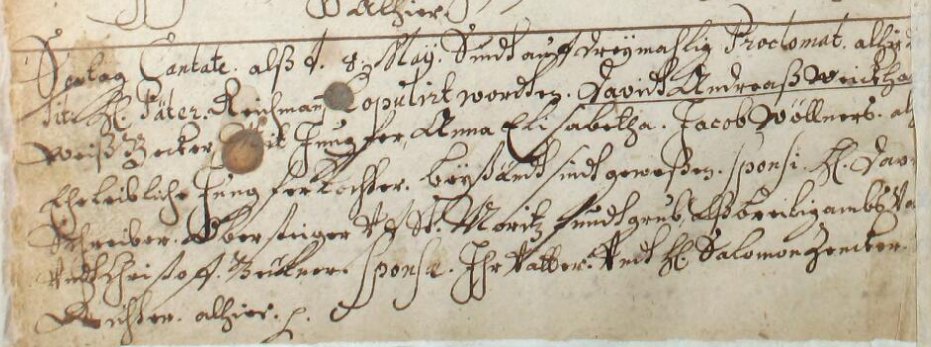 Alhier.
Sontag Cantate. alß d. 8. May. Sindt auff dreymahlig Proclomat. alhie
tit. H. Päter. Reichman Copulirt worden. Davidt Andreaß Weickha
Weiß Becker, Mit Jungfer, Anna Elisabetha. Jacob Wöllners. al
Eheleibliche Jungfer Tochter. beÿständt sindt geweßen. sponsi. H. Dav
Schreiber. Obersteiger St. Moritz fundtgrub, Alß breitigambs Va
Undt Christoff. Beükner. sponsæ. Ihr Vatter. Undt H. Salomon Zenter.
Richter. alhier.